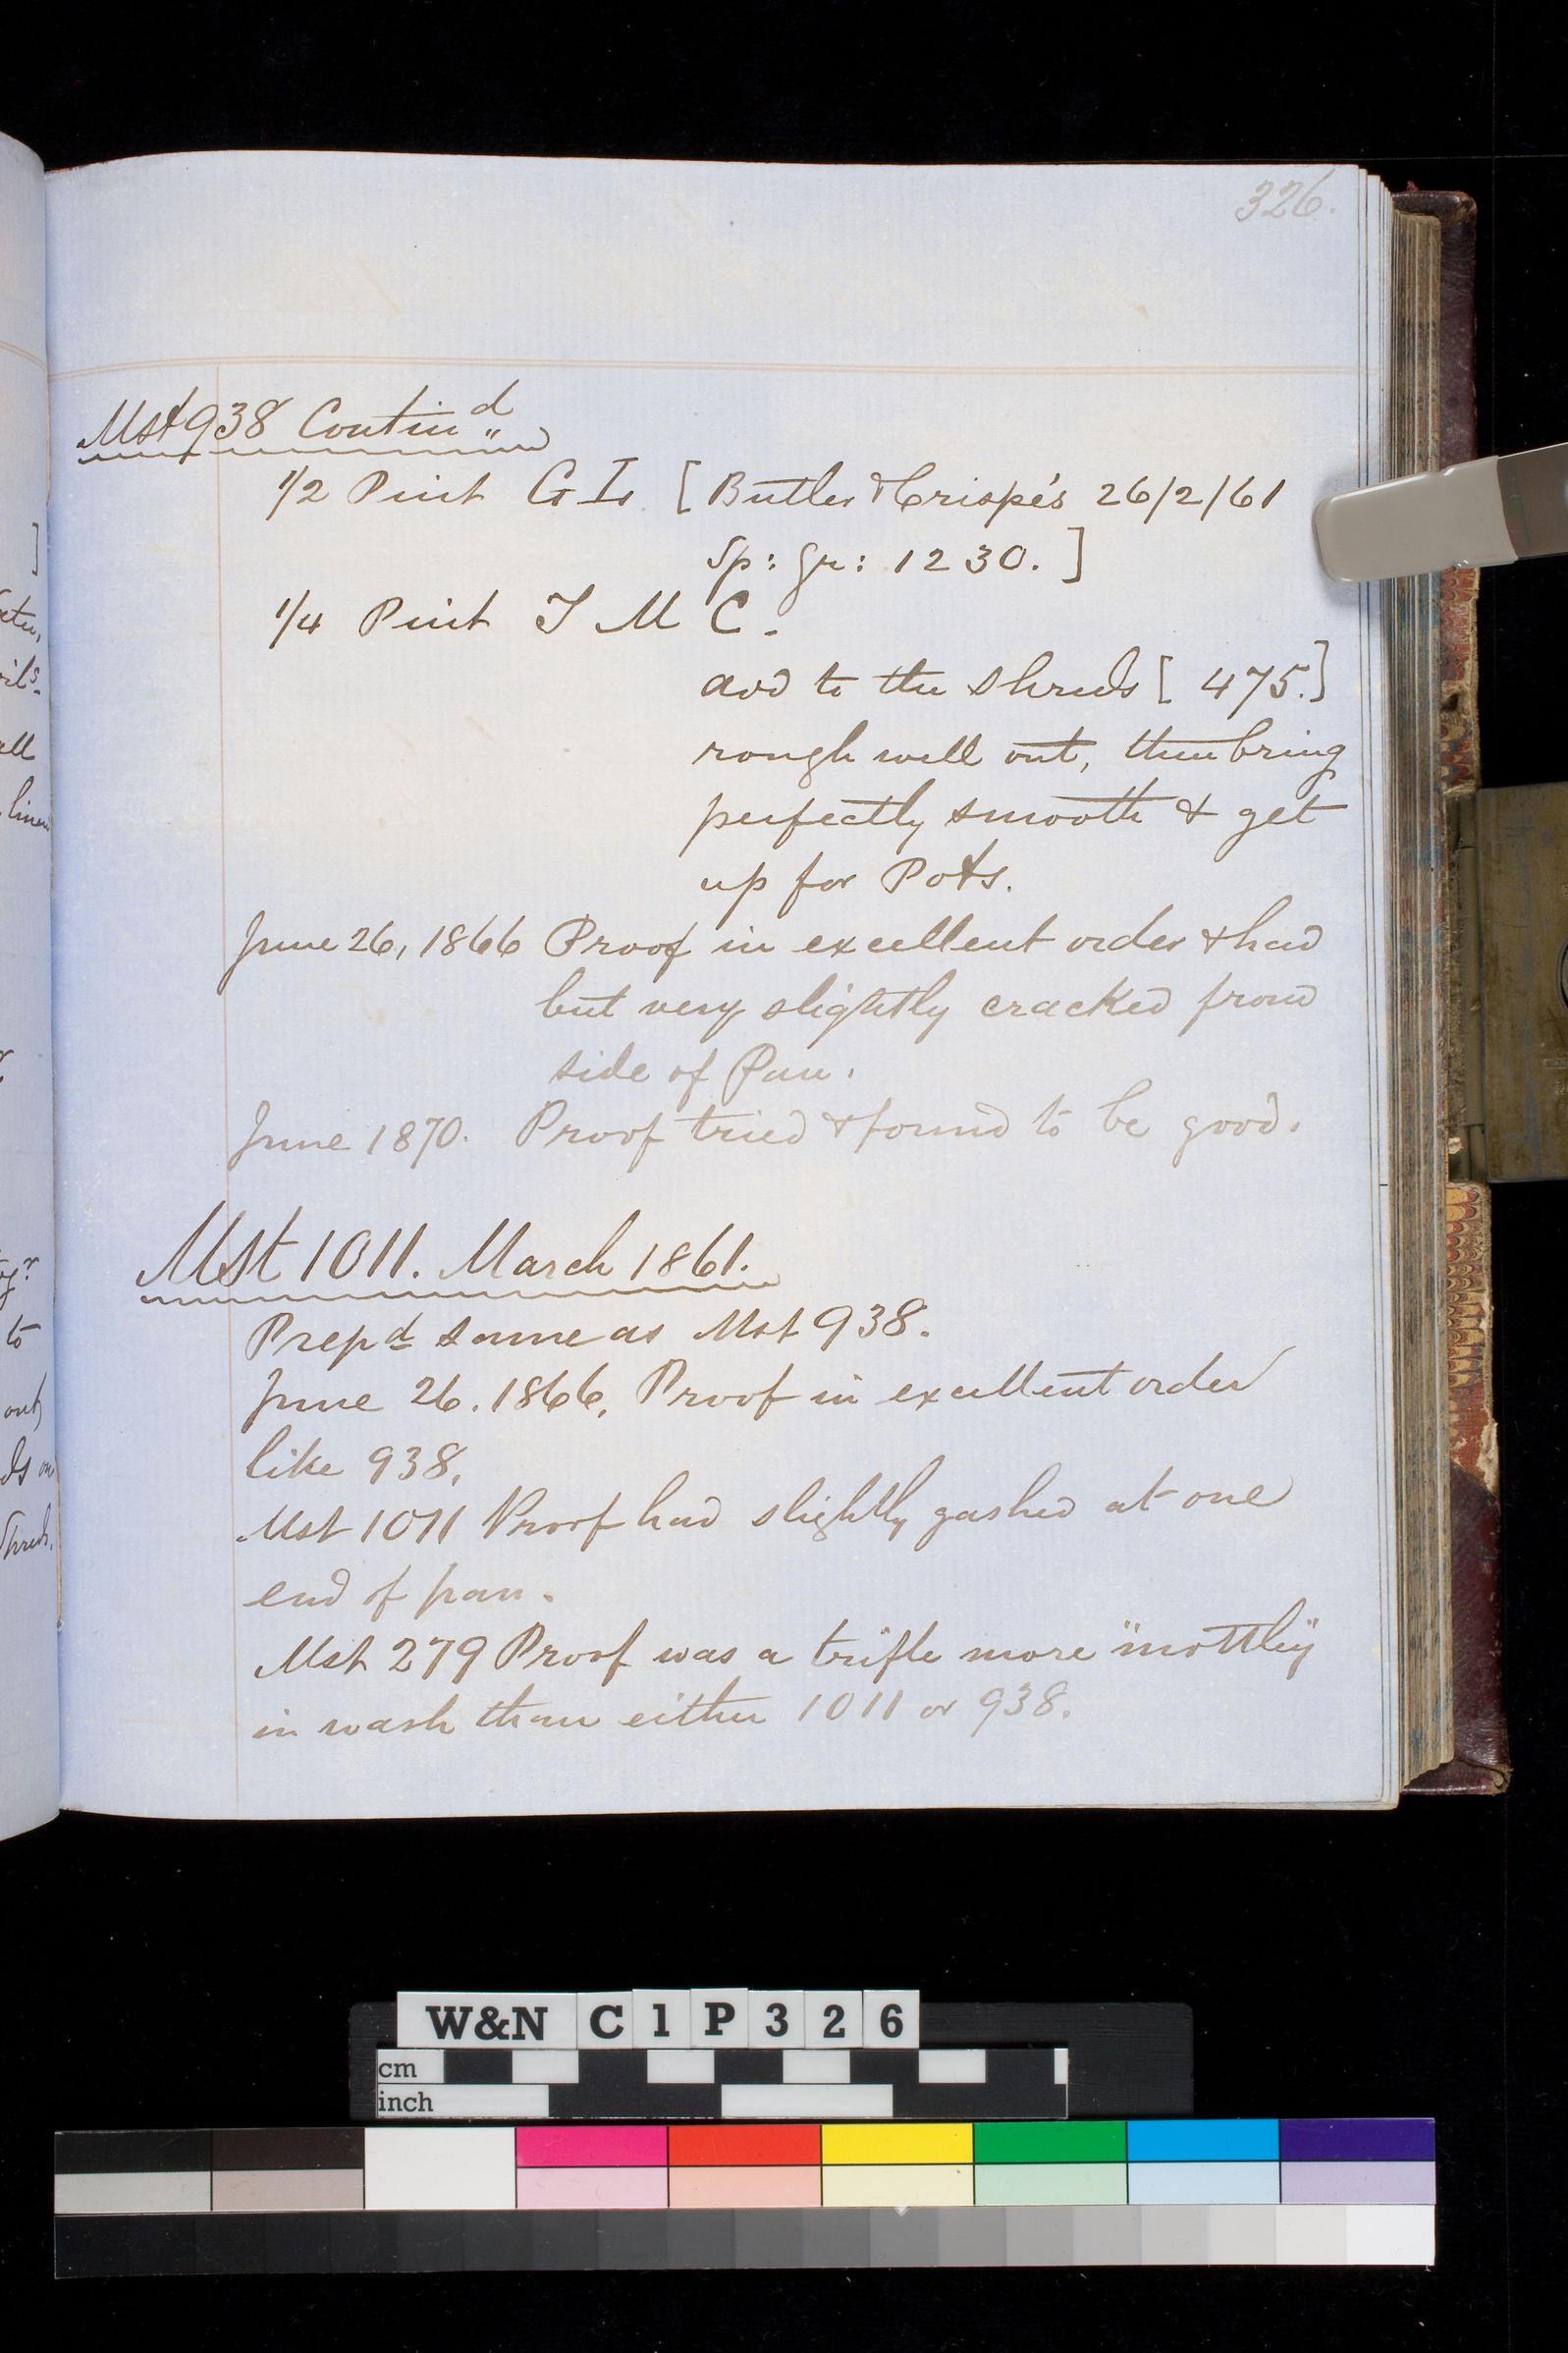 326.
Mst 938 Contin"d
1/2 Pint G I [Butler & Crispe's 26/2/61
Sp: gr: 1230.]
1/4 Pint T M C.
add to the shreds [475.]
rough well out, then bring
perfectly smooth & get
up for Pots.
June 26, 1866 Proof in excellent order & had
but very slightly cracked from
side of Pan.
June 1870. Proof tried & found to be good.
Mst 1011. March 1861.
Prepd same as Mst 938.
June 26. 1866, Proof in excellent order
like 938.
Mst 1011 Proof had slightly gashed at one
end of pan.
Mst 279 Proof was a trifle more "mottley"
in wash than either 1011 or 938.
W&N C1P326
cm
inch